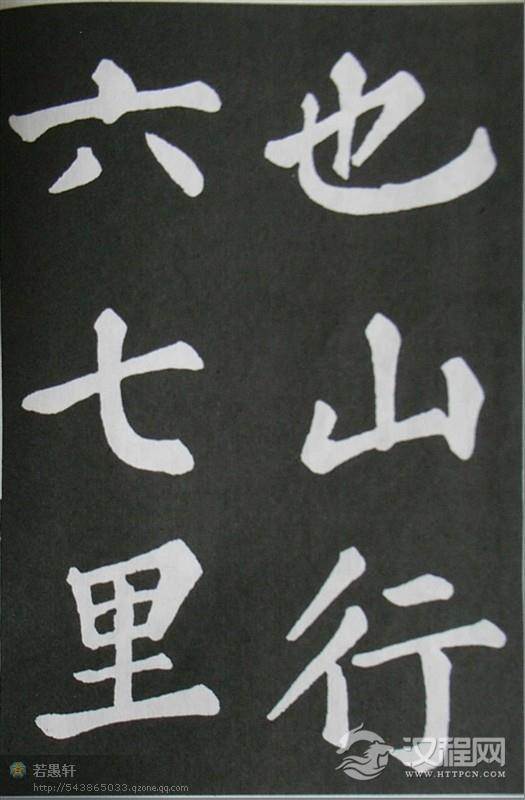 也山行
六七里
若愚轩
http://543865033.qzone.qq.com
汉程网
WWW.HTTPCN.COM